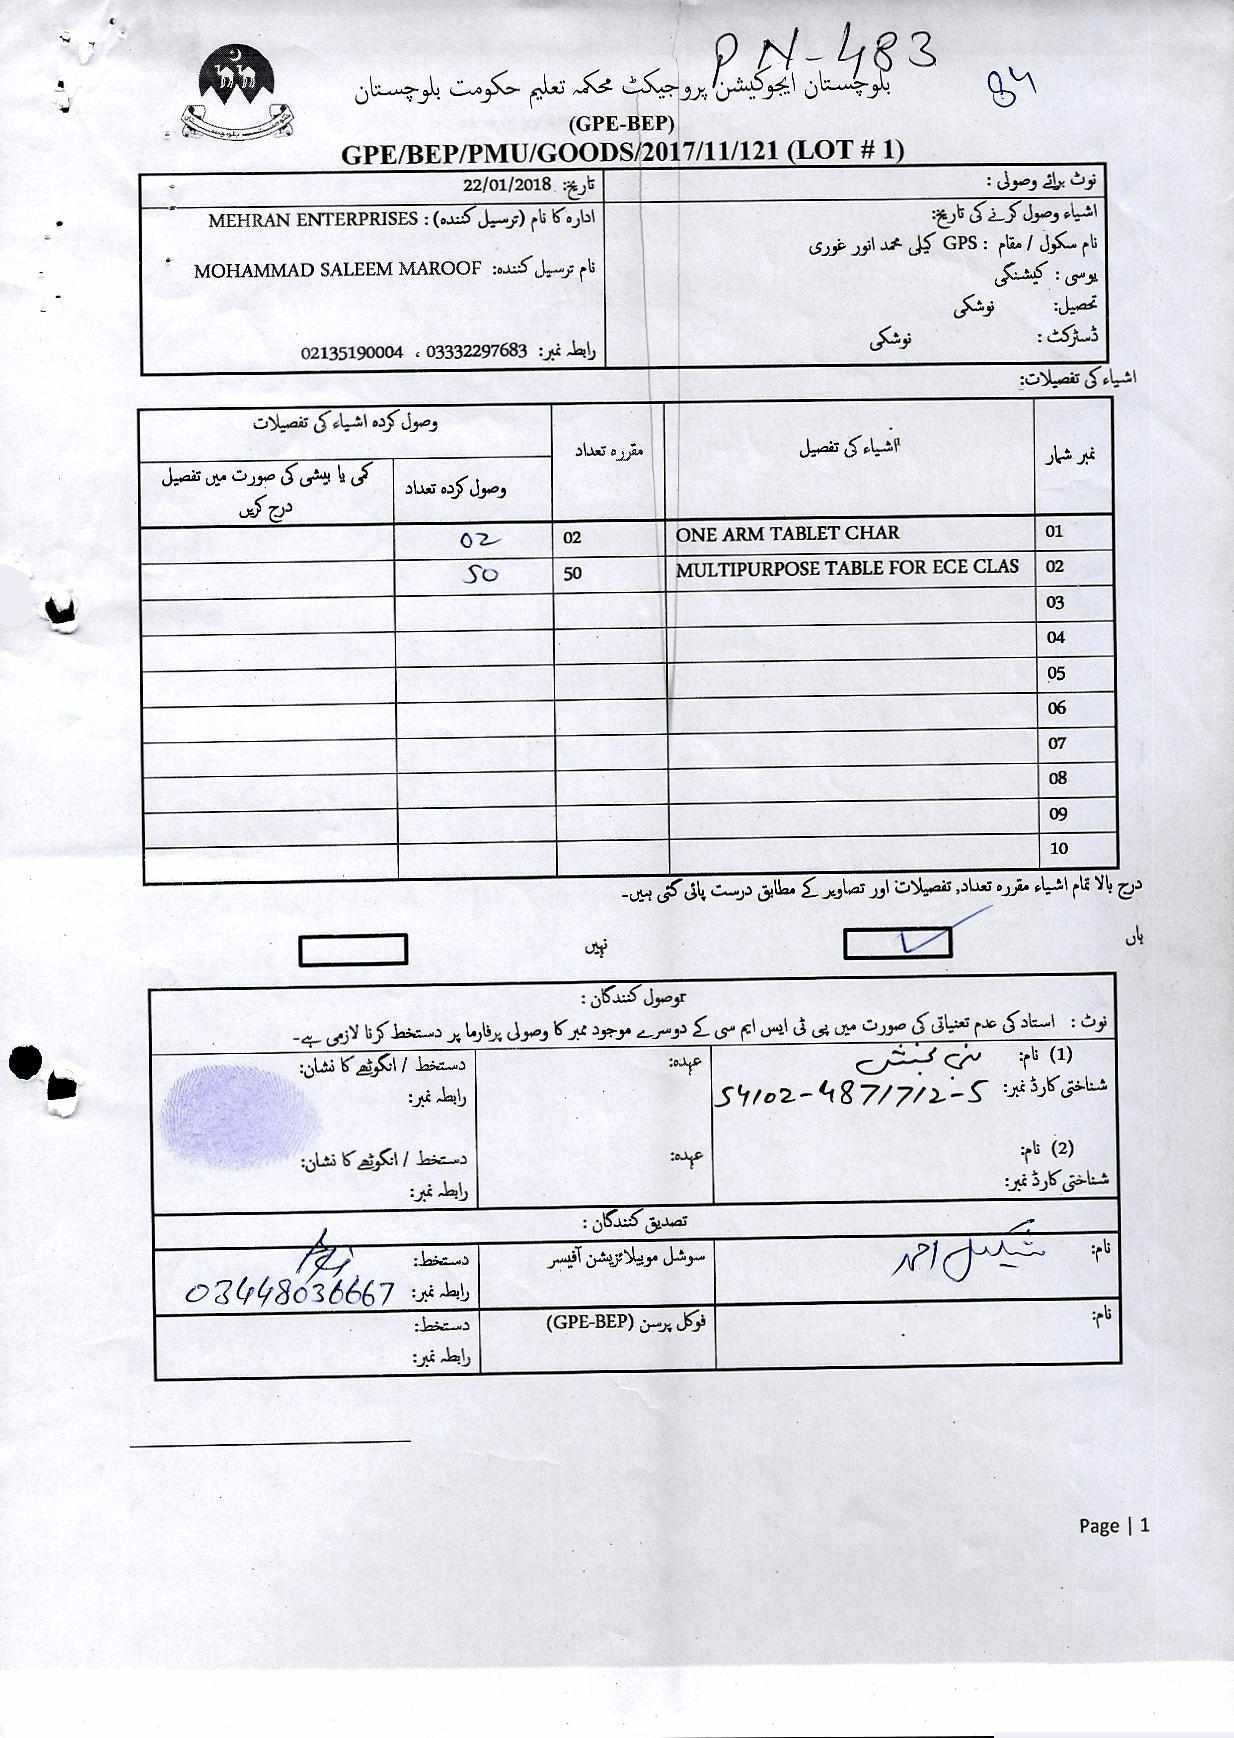 PN-483
84
بلوچستان ایجوکیشن پروجیکٹ محکمہ تعلیم حکومت بلوچستان
(GPE-BEP)
GPE/BEP/PMU/GOODS/2017/11/121 (LOT # 1)
نوٹ برائے وصولی :
تاریخ: 22/01/2018
اشیاء وصول کرنے کی تاریخ:
ادارہ کا نام (ترسیل کنندہ) : MEHRAN ENTERPRISES
نام سکول / مقام : GPS کیلی محمد انور غوری
نام ترسیل کنندہ: MOHAMMAD SALEEM MAROOF
یوسی : کیشنگی
تحصیل: نوشکی
ڈسٹرکٹ : نوشکی
رابطہ نمبر: 03332297683 ، 02135190004
اشیاء کی تفصیلات:
نمبر شمار
اشیاء کی تفصیل
مقررہ تعداد
وصول کردہ اشیاء کی تفصیلات
وصول کردہ تعداد
کمی یا بیشی کی صورت میں تفصیل
درج کریں
01 ONE ARM TABLET CHAR 02 02
02 MULTIPURPOSE TABLE FOR ECE CLAS 50 50
03
04
05
06
07
08
09
10
درج بالا تمام اشیاء مقررہ تعداد, تفصیلات اور تصاویر کے مطابق درست پائی گئی ہیں۔
ہاں
نہیں
وصول کنندگان :
نوٹ : استاد کی عدم تعنیاتی کی صورت میں پی ٹی ایس ایم سی کے دوسرے موجود ممبر کا وصولی پرفارما پر دستخط کرنا لازمی ہے۔
(1) نام:
عہدہ:
دستخط / انگوٹھے کا نشان:
شناختی کارڈ نمبر: 54102-4871712-5
رابطہ نمبر:
(2) نام:
عہدہ:
دستخط / انگوٹھے کا نشان:
شناختی کارڈ نمبر:
رابطہ نمبر:
تصدیق کنندگان :
نام: شکیل احمد
سوشل موبیلائزیشن آفیسر
دستخط:
رابطہ نمبر: 03448036667
نام:
فوکل پرسن (GPE-BEP)
دستخط:
رابطہ نمبر:
Page | 1